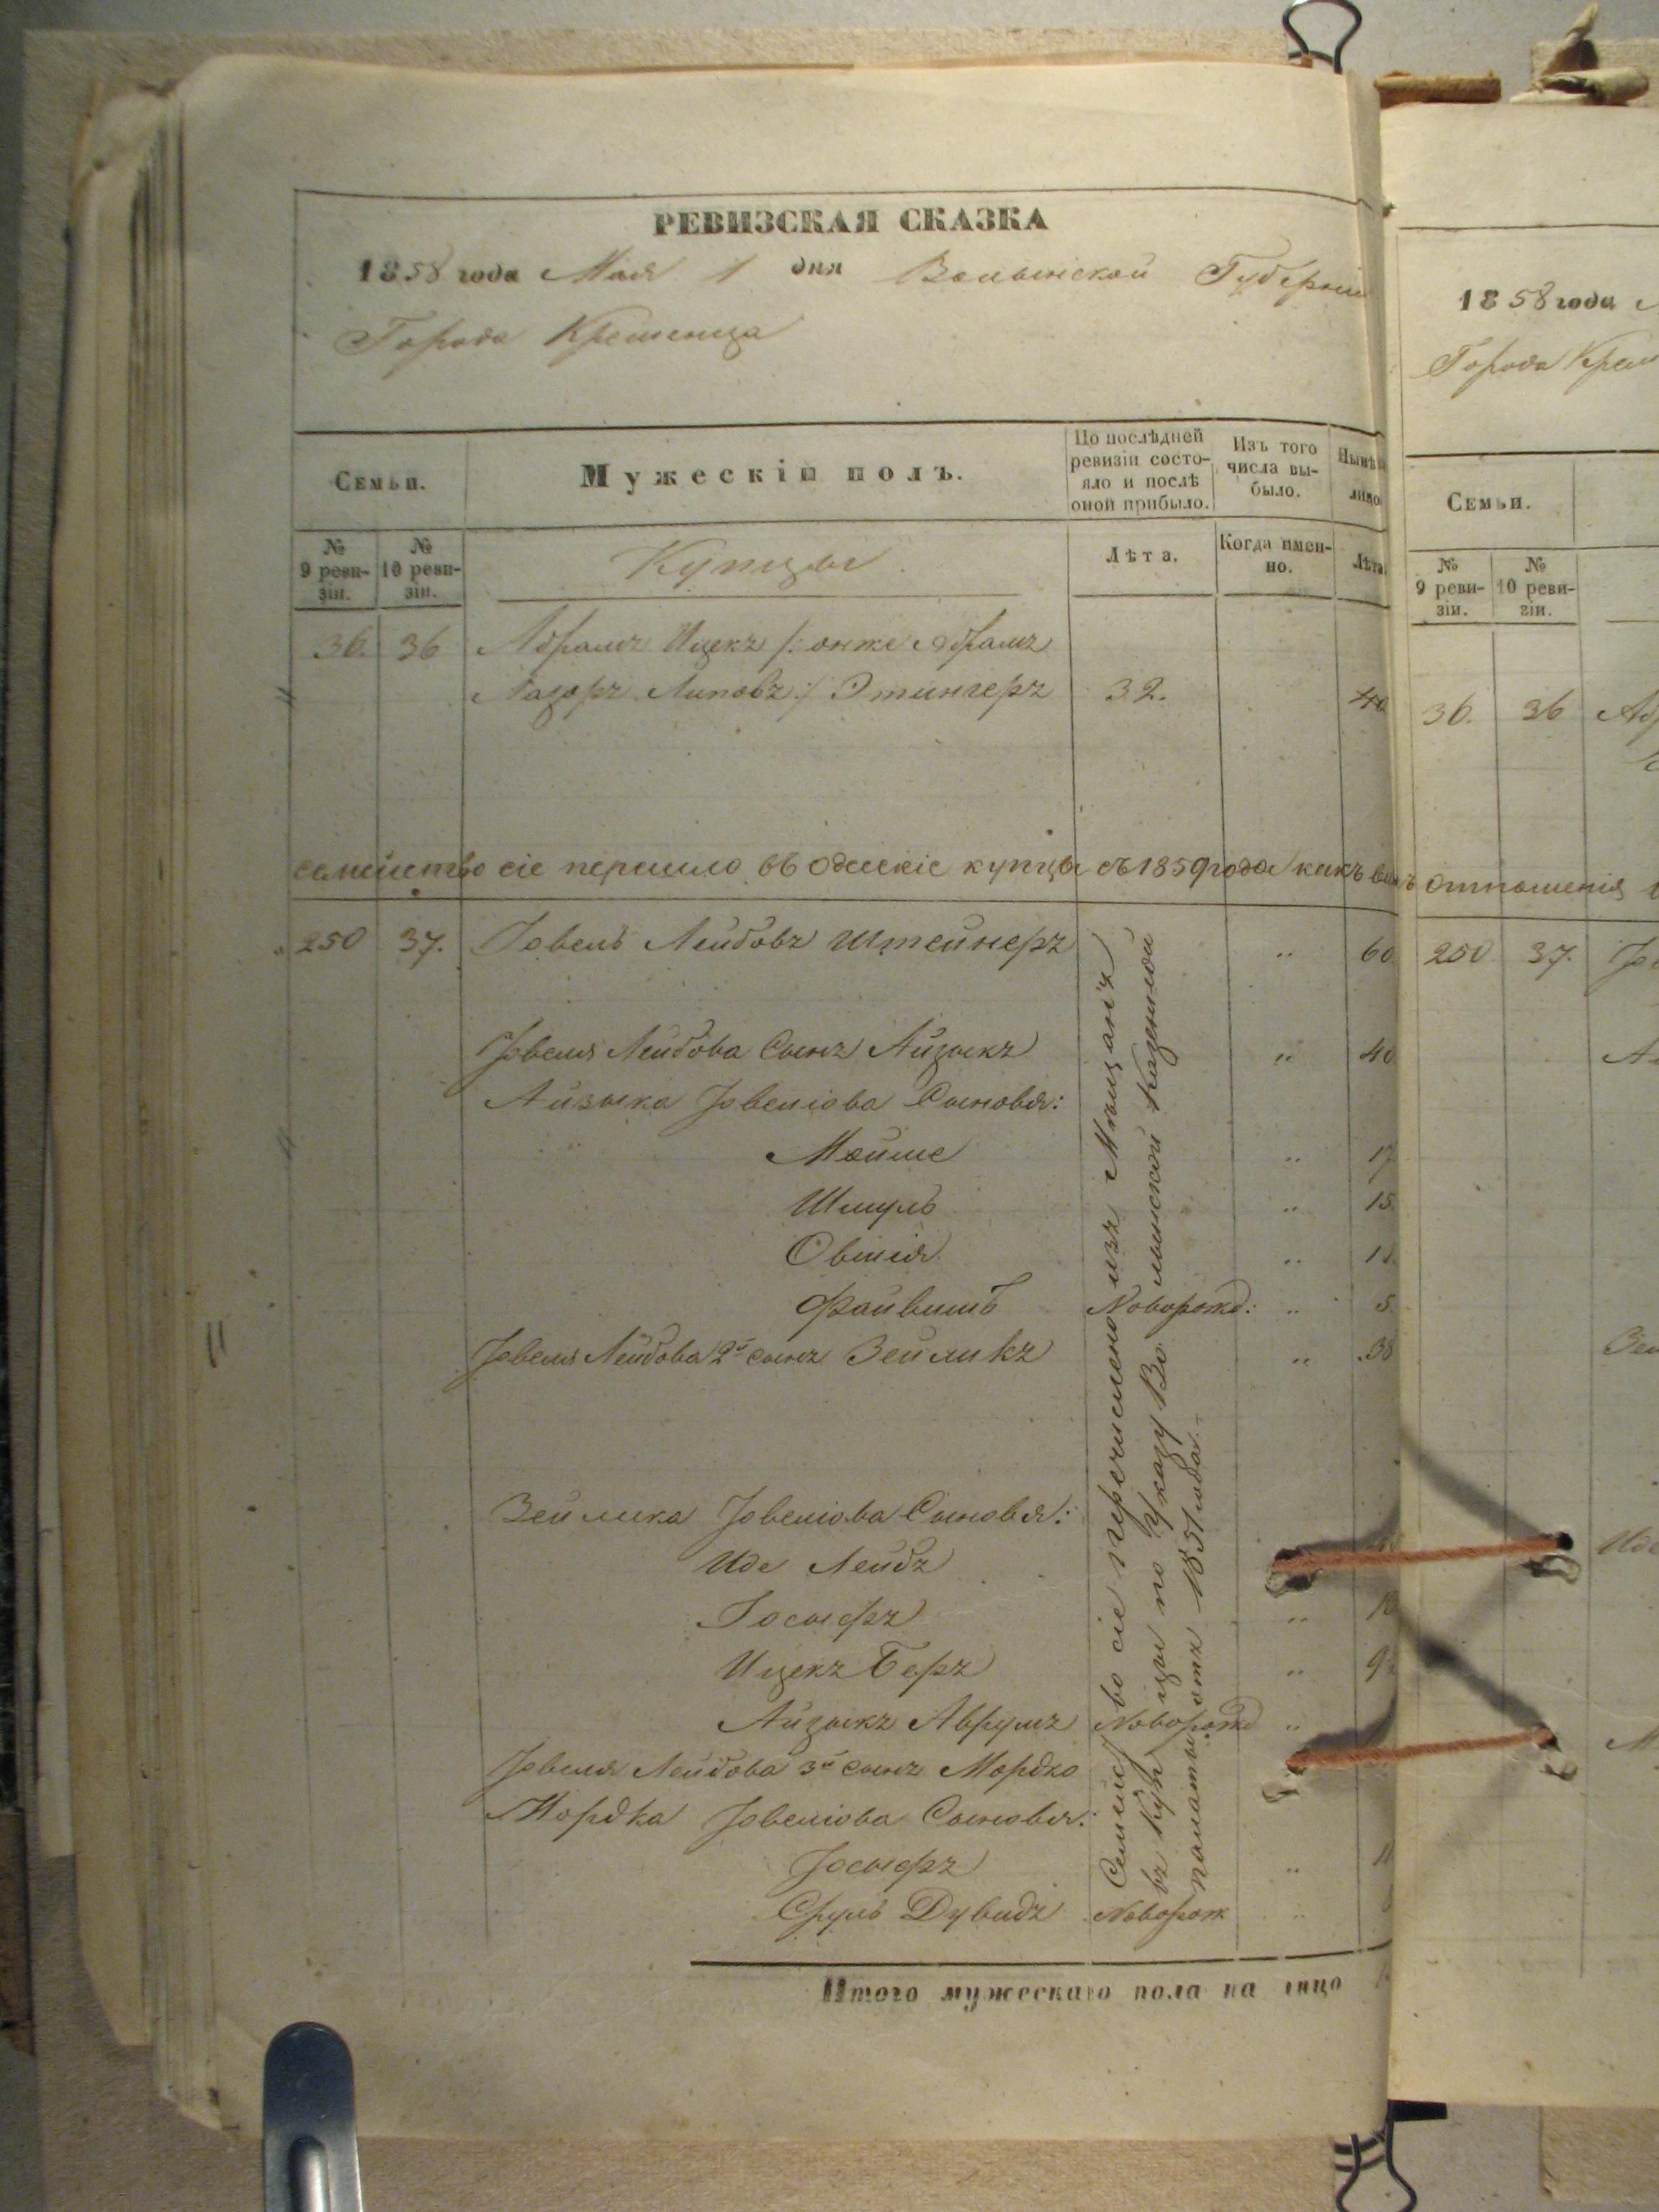 РЕВИЗСКАЯ СКАЗКА
1858 года Мая 1 дня Волынской Губернии
Города Кременца
Семьи.
Мужескій полъ.
По послѣдней ревизіи состояло и послѣ оной прибыло.
Изъ того числа выбыло.
Нынѣ
лицо
№ 9 ревизіи.
№ 10 ревизіи.
Купцы
Лѣта.
Когда именно.
Лѣта
36. 36 Абрамъ Ицекъ /: онже Абрамъ
Лазоръ Липовъ :/ Этингеръ 32. 40
семейство сіе перешло въ Одескіе купцы съ 1859 года /какъ
250 37. Іовель Лейбовъ Штейнеръ " 60
Іовеля Лейбова Сынъ Айзыкъ " 40
Айзыка Іовеліова Сыновья:
Мойше " 17
Шмуль " 15.
Овшія " 11.
Файвишъ Новорожд: " 5.
Іовеля Лейбова 2й сынъ Зейликъ " 38
Зейлика Іовеліова Сыновья:
Иде Лейбъ
Іосыфъ "
Ицекъ Беръ " 9
Айзыкъ Аврумъ Новорожд "
Іовеля Лейбова 3й сынъ Мордко
Мордка Іовеліова Сыновья:
Іосыфъ "
Сруль Дувидъ Новорож "
Семейство сіе перечислено изъ Мѣщанъ
въ Купцы по Указу Волынской Казенной
палаты отъ 1851 года.-
Итого мужескаго пола на лицо
1858 года
Города Крем
Семьи.
№ 9 ревизіи.
№ 10 ревизіи.
36. 36
отношенія
250 37.